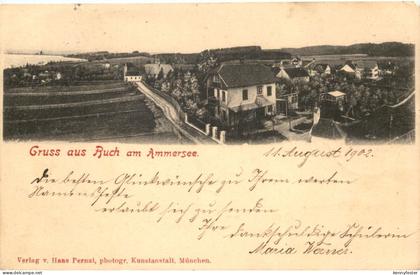 Gruss aus Buch am Ammersee.
11. August 1902.
Die besten Glückwünsche zu Ihrem werten
Namensfeste
erlaubt sich zu senden
Ihre
dankschuldige Schülerin
Maria Werner.
Verlag v. Hans Pernat, photogr. Kunstanstalt, München.
bennyfester